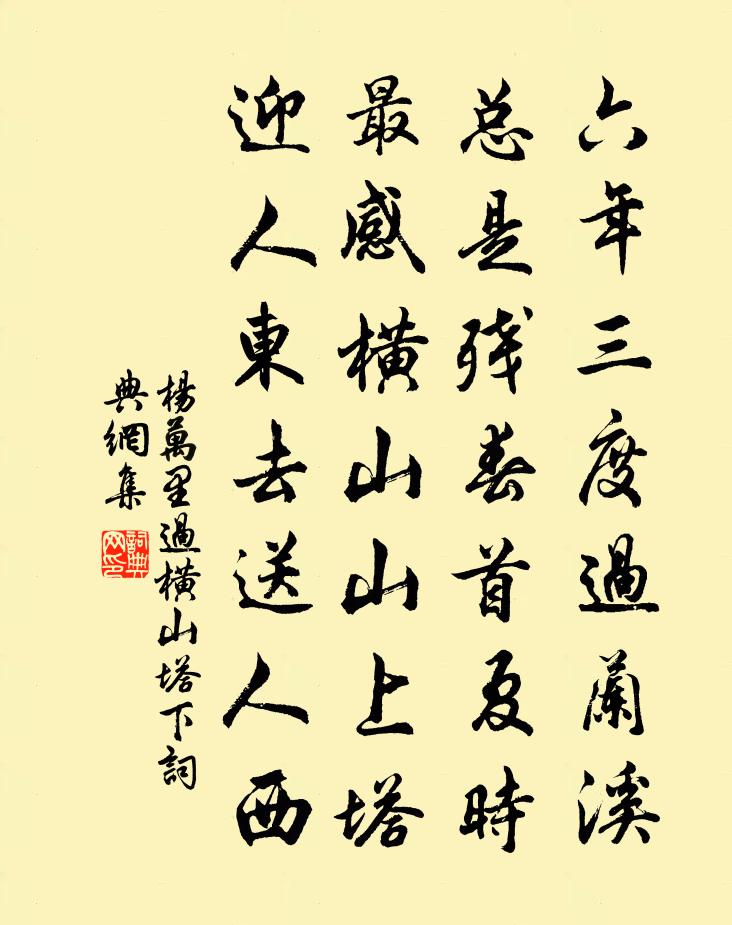 六年三度過蘭溪
总是残春首夏時
最感横山山上塔
迎人東去送人西
楊萬里過横山塔下詞
典網集
詞典
网印